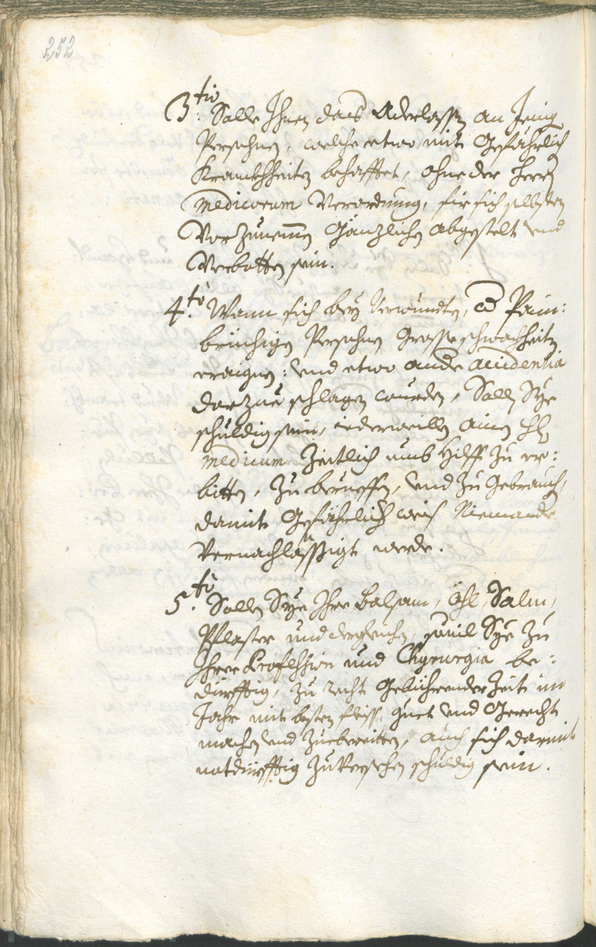 252
3tio Solle Ihnen das Aderlassen an Jenig
Persohnen, welche etwo mit Gefährlich
Krankhheiten behafftet, ohne der Herrn
Medicorum Verordnung, für sich selbsten
Vorzunemen Gänzlichen abgestelt und
Verbotten sein.
4to Wann sich bey Verwundten, od Pain:
brüchigen Persohnen Grosse schwachheiten
eraignen: und etwo andre accidentia
darzue schlagen wurden, Sollen Sye
schuldig sein, iederweillen ainen H:
Medicum Zeitlich umb Hilff zu er:
bitten, Zu berueffen, und zu Gebrauchen,
damit Gefährlich weis Niemandt
Vernachlässigt werde.
5to Sollen Sye Ihre Balsam, Öhl, Salm,
Pflaster und dergleichen, souil Sye zu
Ihrer Profession und Chyrurgia be:
dürfftig, zu recht Gebührender Zeit im
Jahr mit besten fleiss, guet und Gerecht
machen und Zuebereiten, auch sich darmit
notdürfftig zu versehen schuldig sein.